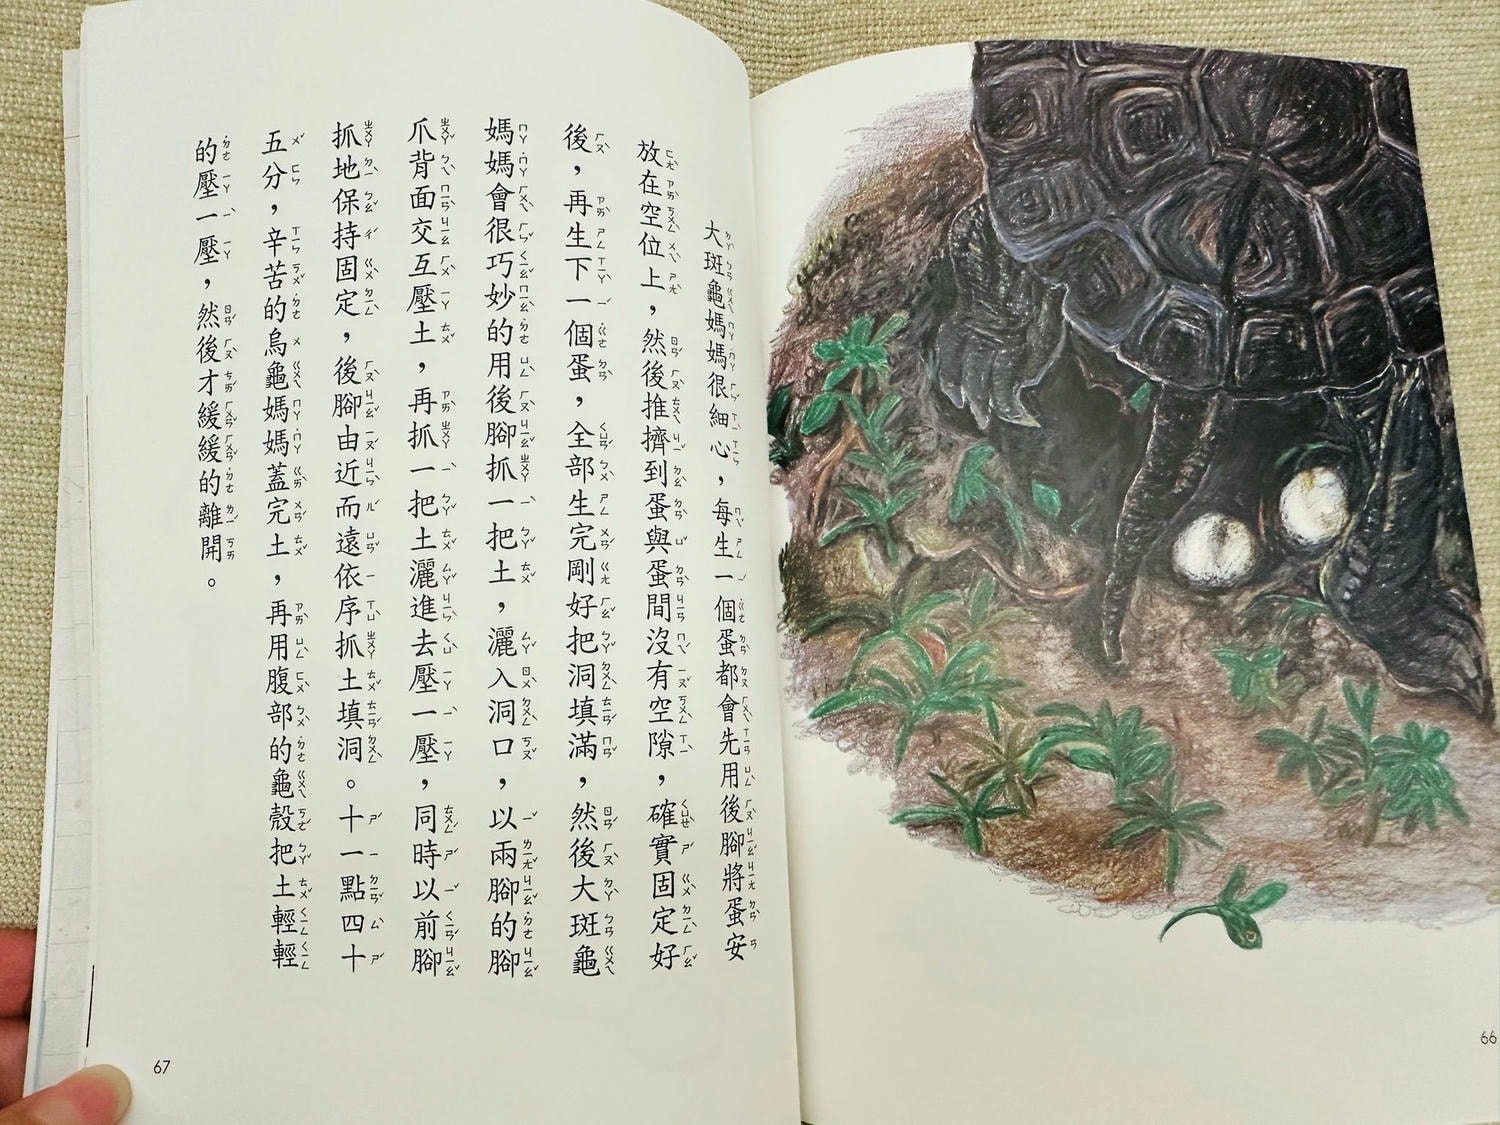 66
大斑龜媽媽很細心，每生一個蛋都會先用後腳將蛋安
放在空位上，然後推擠到蛋與蛋間沒有空隙，確實固定好
後，再生下一個蛋，全部生完剛好把洞填滿，然後大斑龜
媽媽會很巧妙的用後腳抓一把土，灑入洞口，以兩腳的腳
爪背面交互壓土，再抓一把土灑進去壓一壓，同時以前腳
抓地保持固定，後腳由近而遠依序抓土填洞。十一點四十
五分，辛苦的烏龜媽媽蓋完土，再用腹部的龜殼把土輕輕
的壓一壓，然後才緩緩的離開。
67